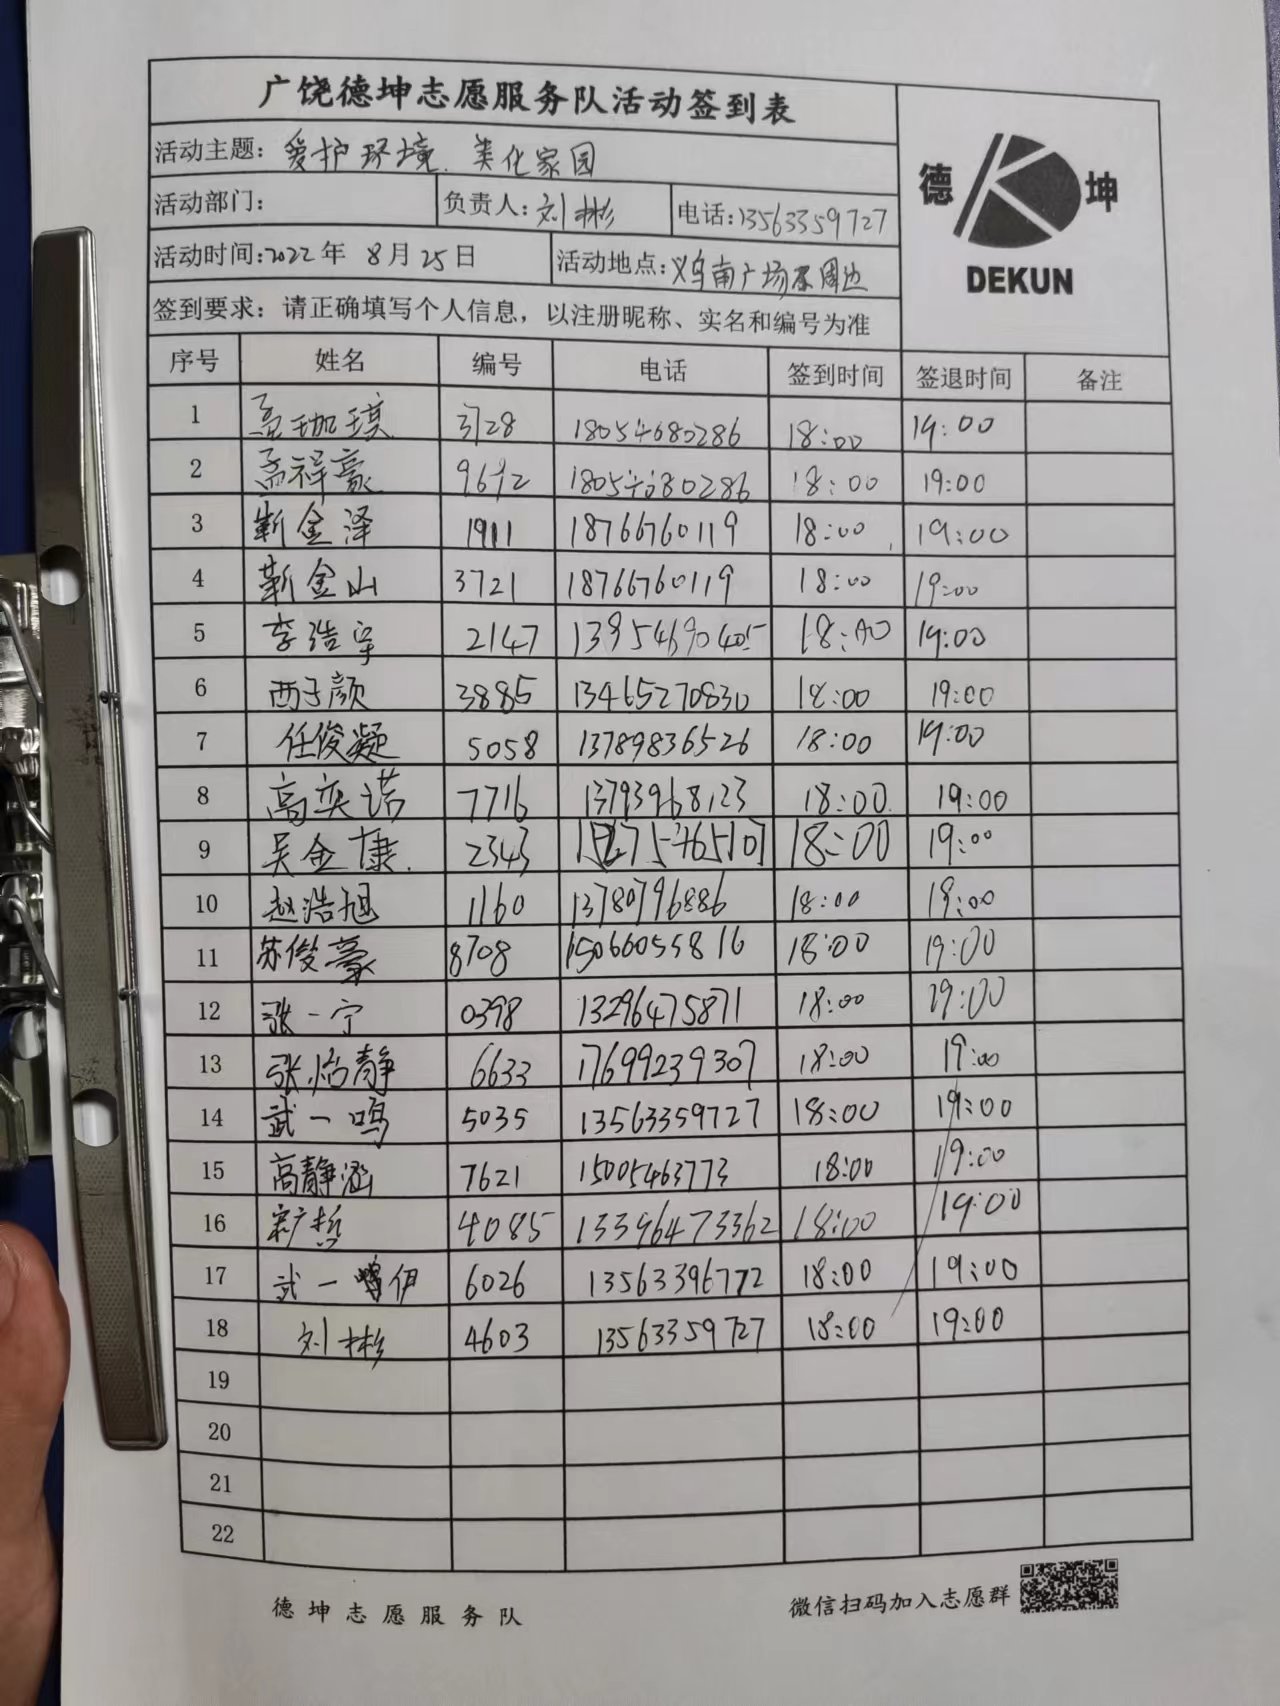 广饶德坤志愿服务队活动签到表
活动主题: 爱护环境. 美化家园
德 坤
DEKUN
活动部门: 负责人: 刘彬 电话: 13563359727
活动时间: 2022年 8月25日 活动地点: 义乌南广场周边
签到要求: 请正确填写个人信息, 以注册昵称、实名和编号为准
序号 姓名 编号 电话 签到时间 签退时间 备注
1 孟珈琪 3728 18054680286 18:00 19:00
2 孟祥豪 9692 18054680286 18:00 19:00
3 靳金泽 1911 18766760119 18:00 19:00
4 靳金山 3721 18766760119 18:00 19:00
5 李浩宇 2147 13954690405 18:00 19:00
6 西子颜 3885 13465270830 18:00 19:00
7 任俊凝 5058 13789836526 18:00 19:00
8 高奕诺 7716 13793968123 18:00 19:00
9 吴金康 2343 18:00 19:00
10 赵浩旭 1160 13780796886 18:00 19:00
11 苏俊豪 8708 15066055816 18:00 19:00
12 张一宁 0398 13296475871 18:00 19:00
13 张怡静 6633 17699239307 18:00 19:00
14 武一鸣 5035 13563359727 18:00 19:00
15 高静涵 7621 15005463773 18:00 19:00
16 4085 13396473362 18:00 19:00
17 武一伊 6026 13563396772 18:00 19:00
18 刘彬 4603 13563359727 18:00 19:00
19
20
21
22
德坤志愿服务队 微信扫码加入志愿群